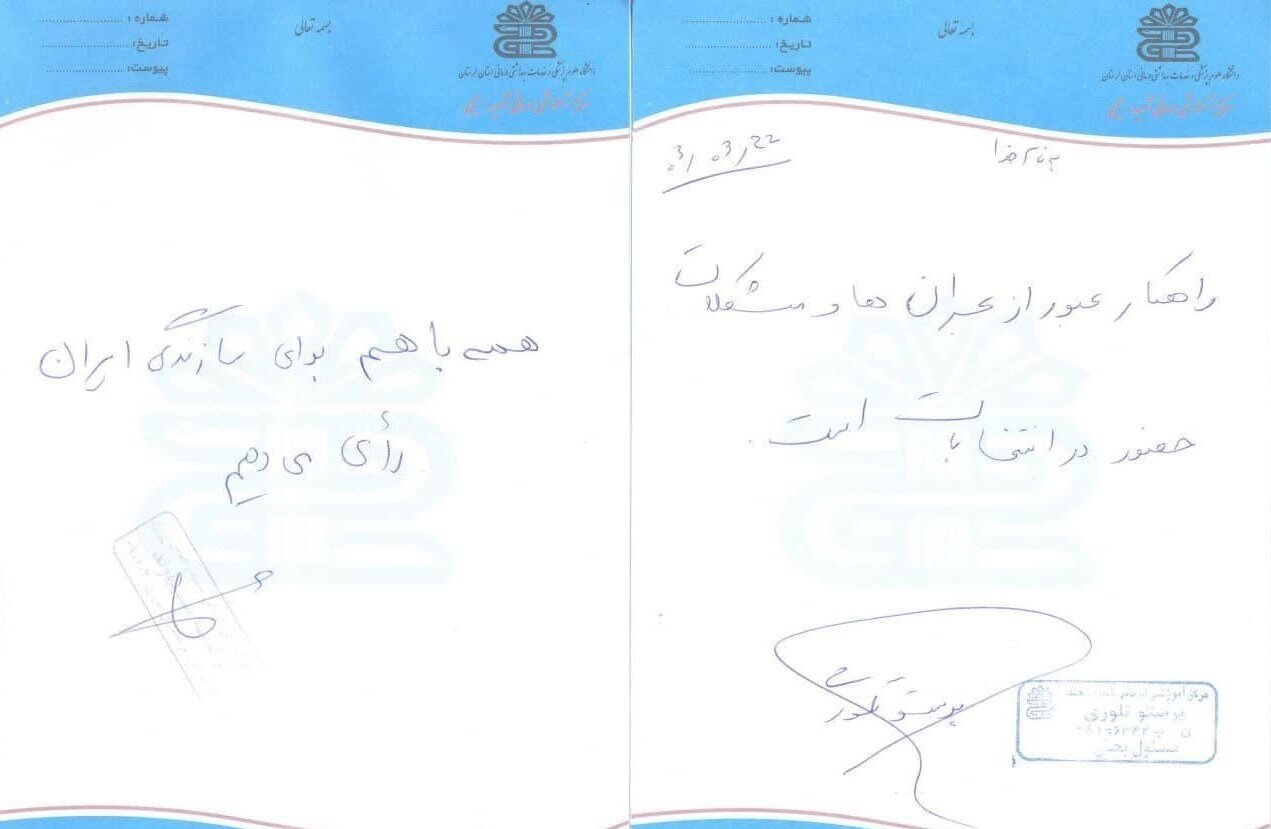 بسمه تعالی
شماره : ....................
تاریخ: ....................
پیوست: ....................
دانشگاه علوم پزشکی و خدمات بهداشتی درمانی استان لرستان
به نام خدا
03/03/22
راهکار عبور از بحران ها و مشکلات
حضور در انتخابات است.
پرستو تلوری
پرستو تلوری
مسئول بخش
بسمه تعالی
شماره : ....................
تاریخ: ....................
پیوست: ....................
دانشگاه علوم پزشکی و خدمات بهداشتی درمانی استان لرستان
همه با هم برای سازندگی ایران
رأی می دهیم